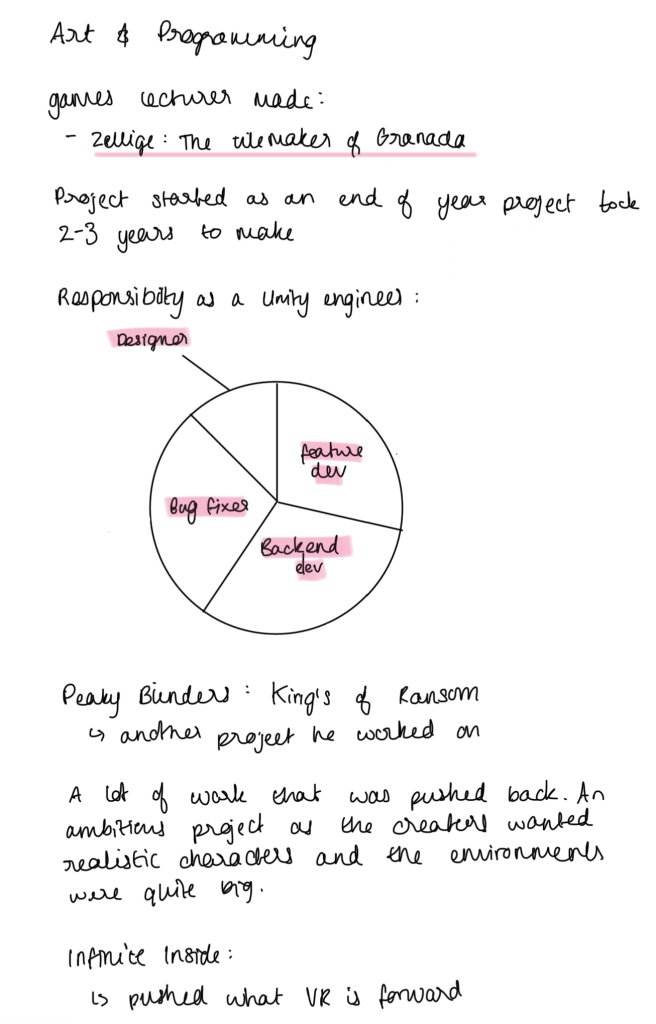 Art & Programming
games lecturer made:
- Zellige: The tilemaker of Granada
Project started as an end of year project took
2-3 years to make
Responsibility as a Unity engineer:
Designer
feature
dev
Bug fixer
Backend
dev
Peaky Blinders: King's of Ransom
↳ another project he worked on
A lot of work that was pushed back. An
ambitious project as the creators wanted
realistic characters and the environments
were quite big.
Infinite Inside:
↳ pushed what VR is forward